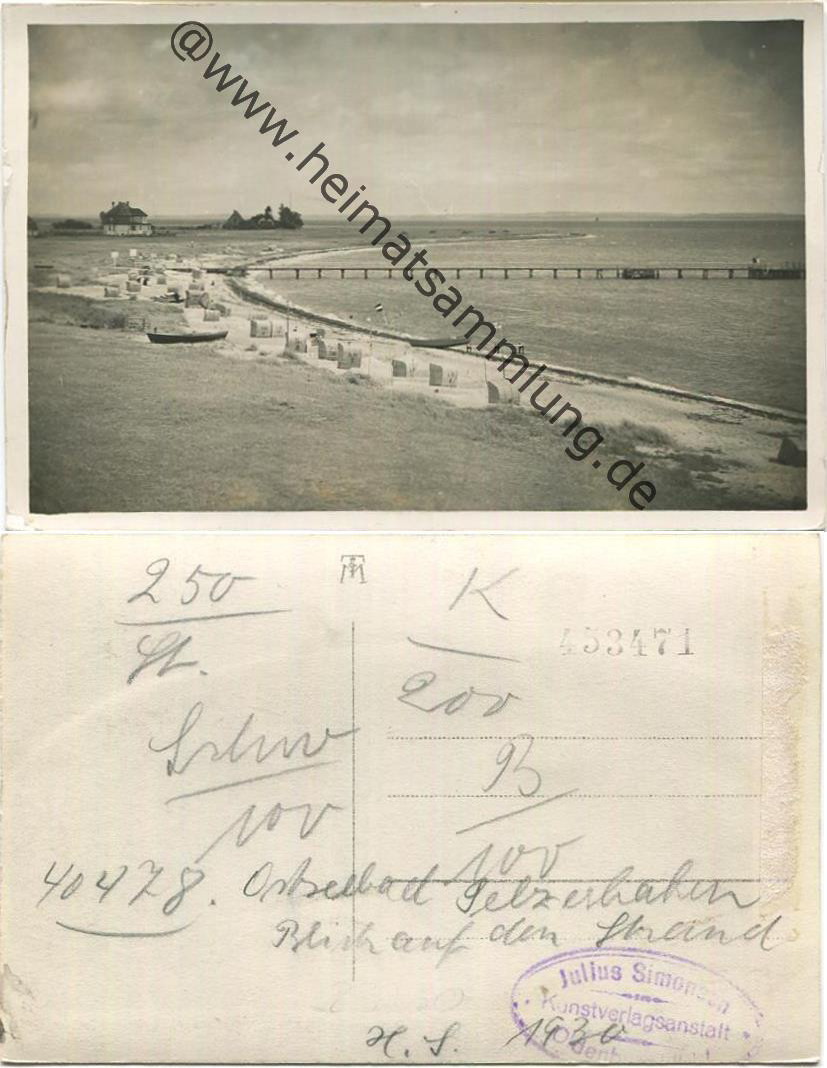 @www.heimatsammlung.de
250
St.
100
K
453471
200
B
100
40478. Ostseebad Pelzerhaken
Blick auf den Strand
Julius Simonsen
Kunstverlagsanstalt
H. S. 1930